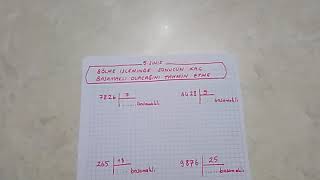 5.SINIF
BÖLME İŞLEMİNDE SONUCUN KAÇ
BASAMAKLI OLACAĞINI TAHMİN ETME
7826 7 4428 9
......basamaklı ......basamaklı
265 13 9876 25
......basamaklı ......basamaklı